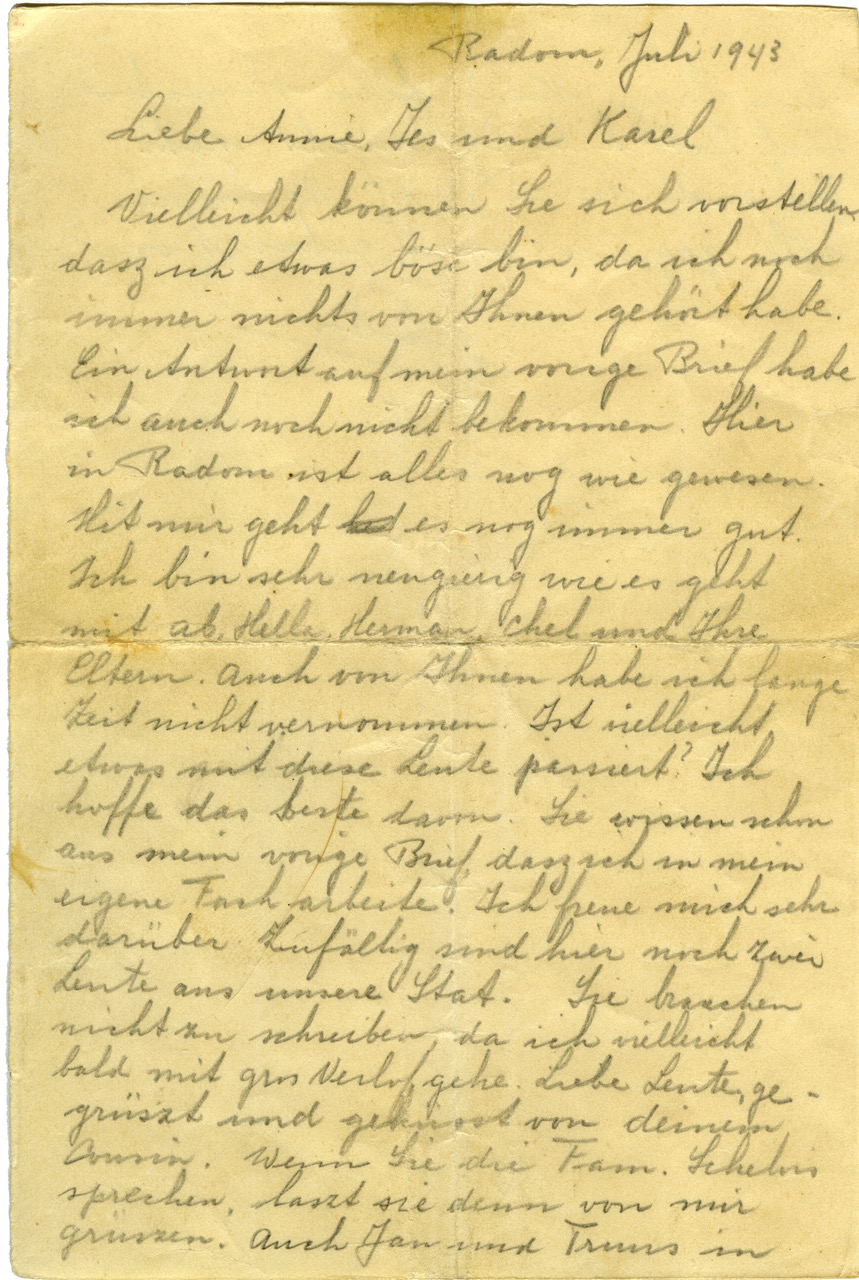 Radom, Juli 1943
Liebe Annie, Jes und Karel
Vielleicht können Sie sich vorstellen,
dasz ich etwas böse bin, da ich noch
immer nichts von Ihnen gehört habe.
Ein Antwort auf mein vorige Brief habe
ich auch noch nicht bekommen. Hier
in Radom ist alles nog wie gewesen.
Mit mir geht es nog immer gut.
Ich bin sehr neugierig wie es geht
mit ab, Hella, Herman, Chel und Ihre
Eltern. Auch von Ihnen habe ich lange
Zeit nicht vernommen. Ist vielleicht
etwas mit diese Leute passiert? Ich
hoffe das beste davon. Sie wissen schon
aus mein vorige Brief, dasz ich in mein
eigene Fach arbeite. Ich freue mich sehr
darüber. Zufällig sind hier noch zwei
Leute aus unsere Stat. Sie brauchen
nicht zu schreiben, da ich vielleicht
bald mit gros Verlof gehe. Liebe Leute, ge-
grüszt und geküsst von deinem
Cousin. Wenn Sie die Fam. Schelvis
sprechen, laszt sie denn von mir
grüszen. Auch Jan und Truus in